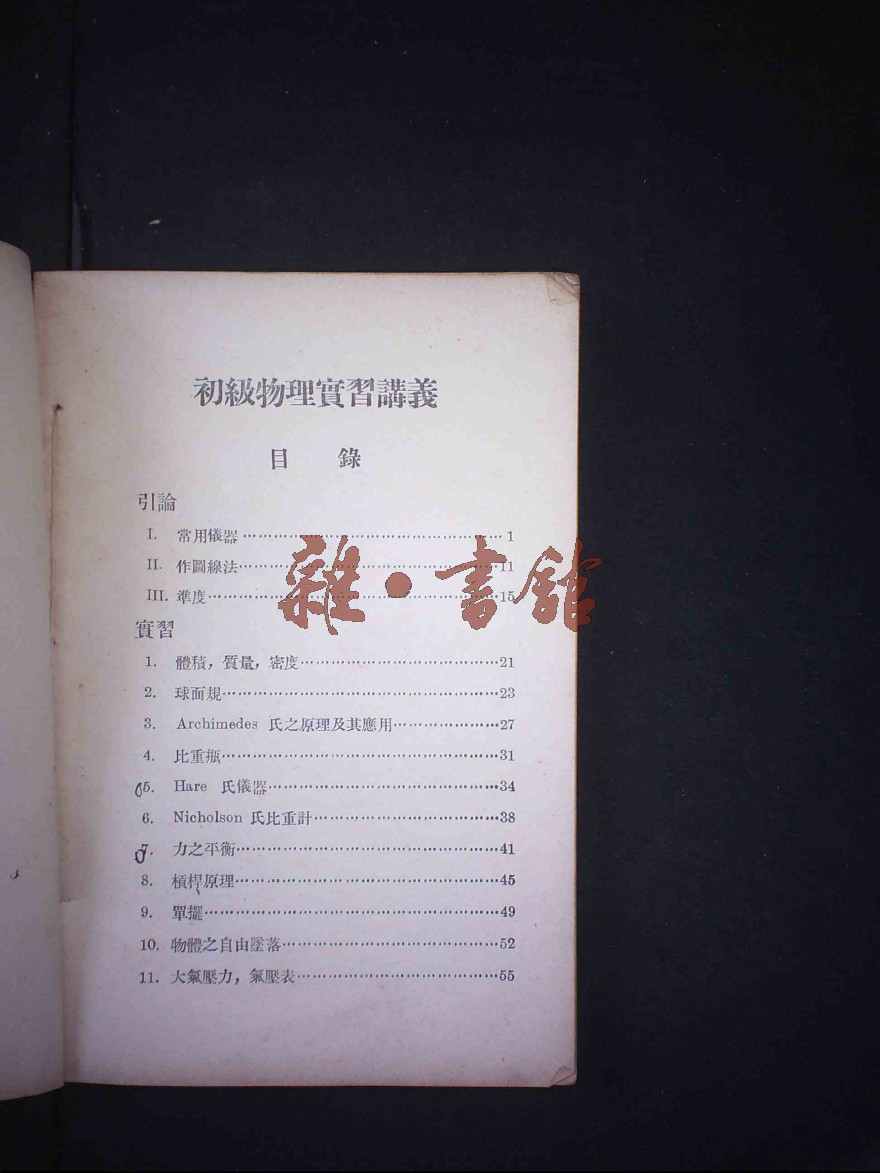 初級物理實習講義
目 錄
引論
I. 常用儀器………………………………1
II. 作圖線法………………………………11
III. 準度………………………………15
雜·書館
實習
1. 體積，質量，密度………………………………21
2. 球面規………………………………23
3. Archimedes 氏之原理及其應用………………………………27
4. 比重瓶………………………………31
5. Hare 氏儀器………………………………34
6. Nicholson 氏比重計………………………………38
7. 力之平衡………………………………41
8. 槓桿原理………………………………45
9. 單擺………………………………49
10. 物體之自由墜落………………………………52
11. 大氣壓力，氣壓表………………………………55